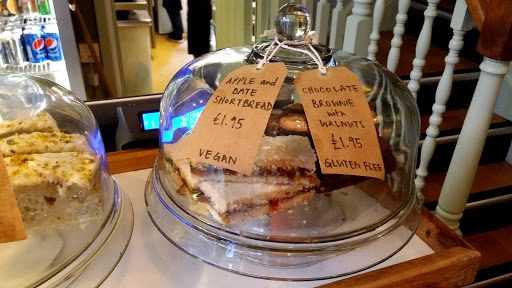 APPLE and
DATE
SHORTBREAD
£1.95
VEGAN
CHOCOLATE
BROWNIE
with
WALNUTS
£1.95
GLUTEN FREE
pepsi